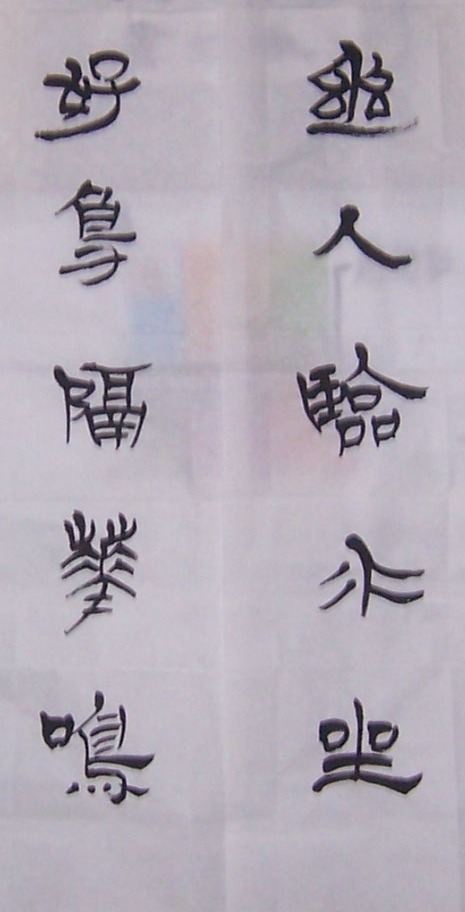 幽人臨水坐
好鳥隔華鳴